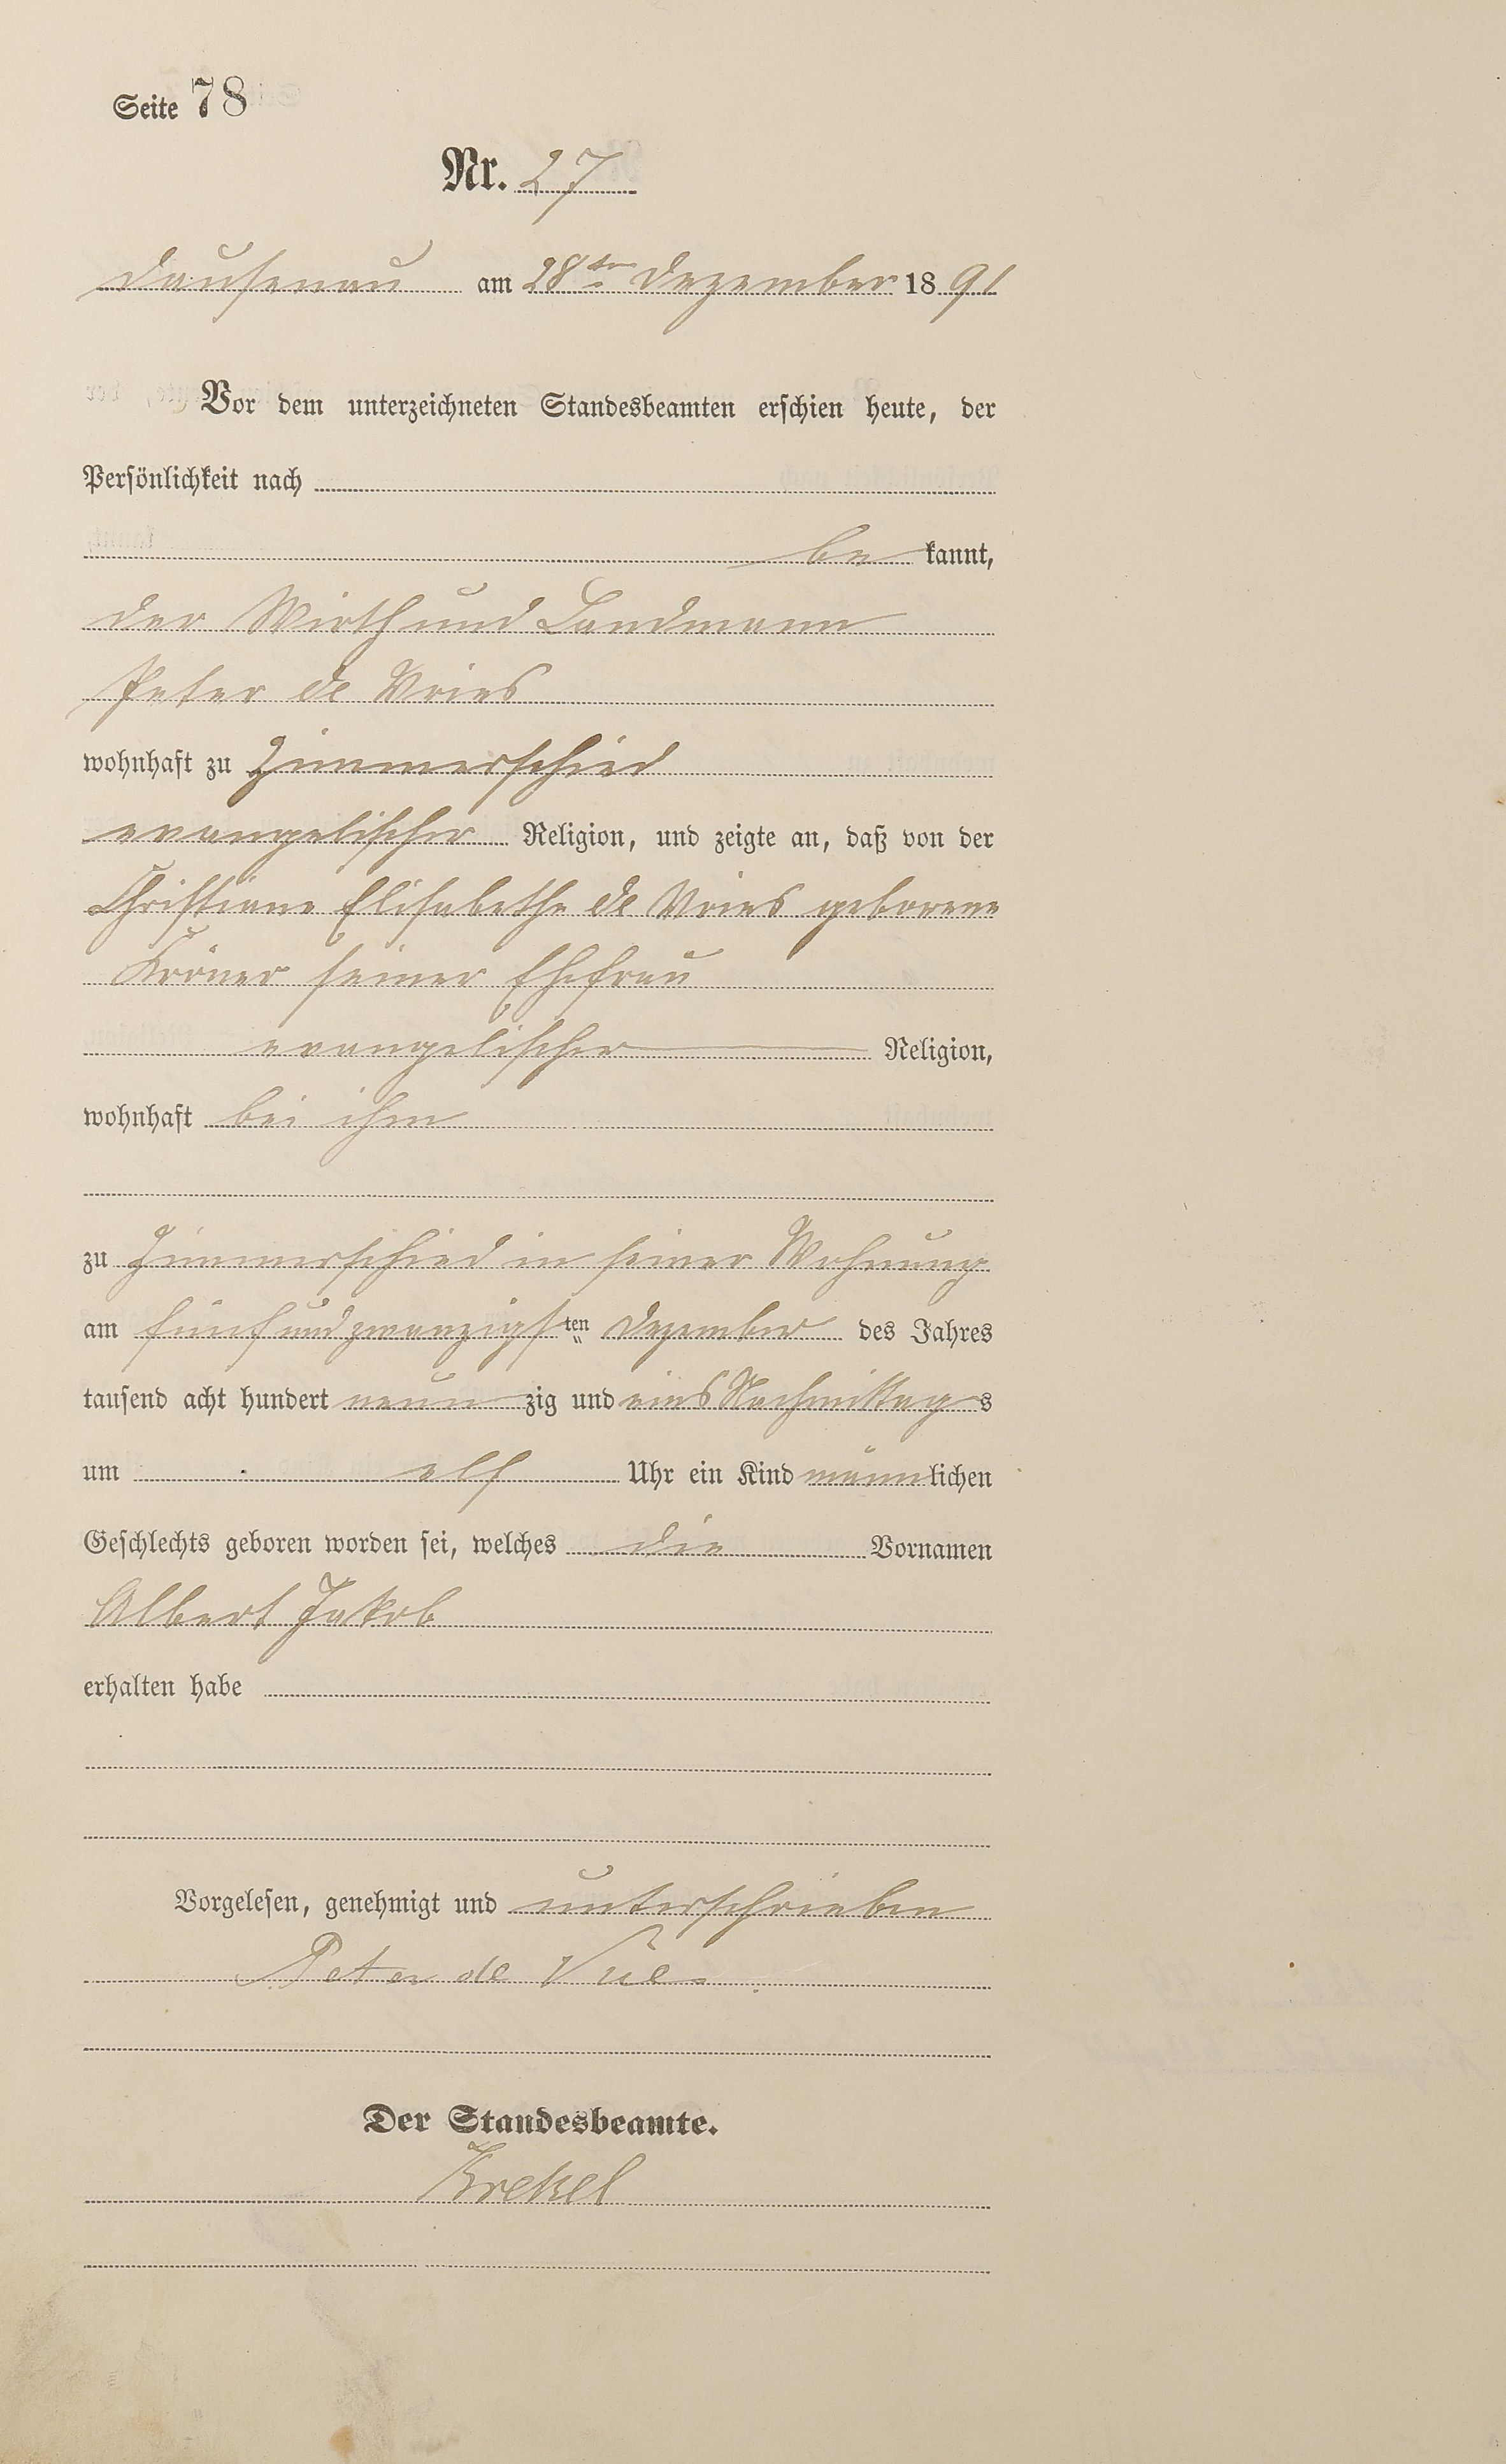 Seite 78
Nr. 27
Dausenau am 28ten Dezember 1891
Vor dem unterzeichneten Standesbeamten erschien heute, der
Persönlichkeit nach
be kannt,
der Wirth und Landmann
Peter de Vries
wohnhaft zu Zimmerschied
evangelischer Religion, und zeigte an, daß von der
Christiane Elisabethe de Vries geborene
Kröner seiner Ehefrau
evangelischer Religion,
wohnhaft bei ihm
zu Zimmerschied in seiner Wohnung
am fünfundzwanzigsten Dezember des Jahres
tausend acht hundert neunzig und eins Nachmittags
um elf Uhr ein Kind männlichen
Geschlechts geboren worden sei, welches die Vornamen
Albert Jakob
erhalten habe
Vorgelesen, genehmigt und unterschrieben
Peter de Vries
Der Standesbeamte.
Krekel